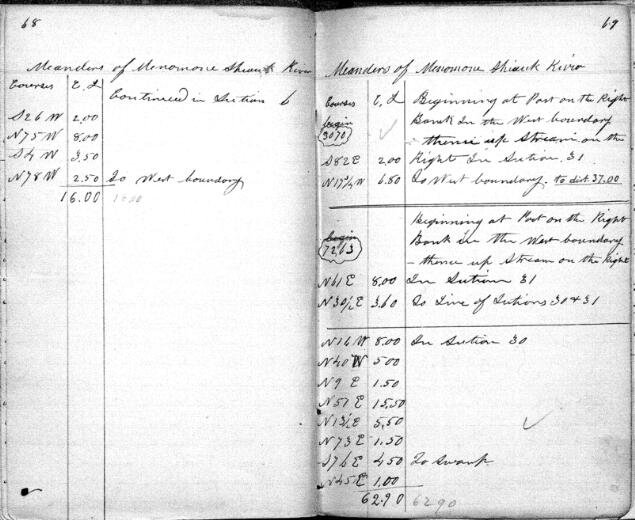 68
Meanders of Menomone Shiauk River
Courses C. L
Continued in Section 6
S26W 2,00
N75W 8,00
S4W 3,50
N78W 2,50 To West boundary
16.00 16.00
69
Meanders of Menomone Shiauk River
Courses C. L Beginning at Post on the Right
begin Bank In the West boundary
3070 - thence up Stream on the
S82E 2.00 Right In Section 31
N17½W 6.80 To West boundary. to dist 37.00
Beginning at Post on the Right
begin Bank in the West boundary
7263 - thence up Stream on the Right
N61E 8,00 In Section 31
N30½E 3,60 To Line of Sections 30 & 31
N16W 8.00 In Section 30
N40W 5.00
N9E 1.50
N51E 15,50
N13½E 5,50
N73E 1.50
S76E 4,50 To Swamp
N45E 1,00
62.90 62.90